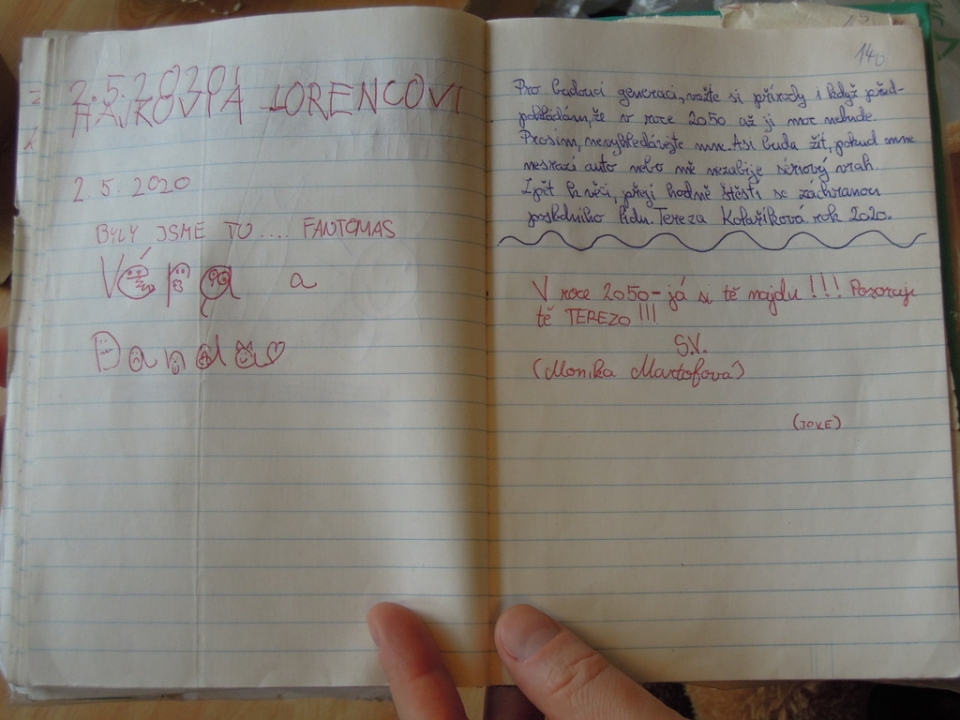 2.5.2020
HÁJKOVI A LORENCOVI
2. 5. 2020
BYLY JSME TO .... FANTOMAS
Věra a
Danda
140
Pro budoucí generaci, važte si přírody i když před-
pokládám, že v roce 2050 až jí moc nebude.
Prosím, nevyhledávejte mne. Asi budu žít, pokud mne
nesrazí auto nebo mě nezabije sériový vrah.
Zpět k věci, přeji hodně štěstí se záchranou
posledního lidu. Tereza Kolaříková rok 2020.
V roce 2050 - já si tě najdu !!! Pozoruju
tě TEREZO !!!
S.V.
(Monika Martofova)
(JOKE)